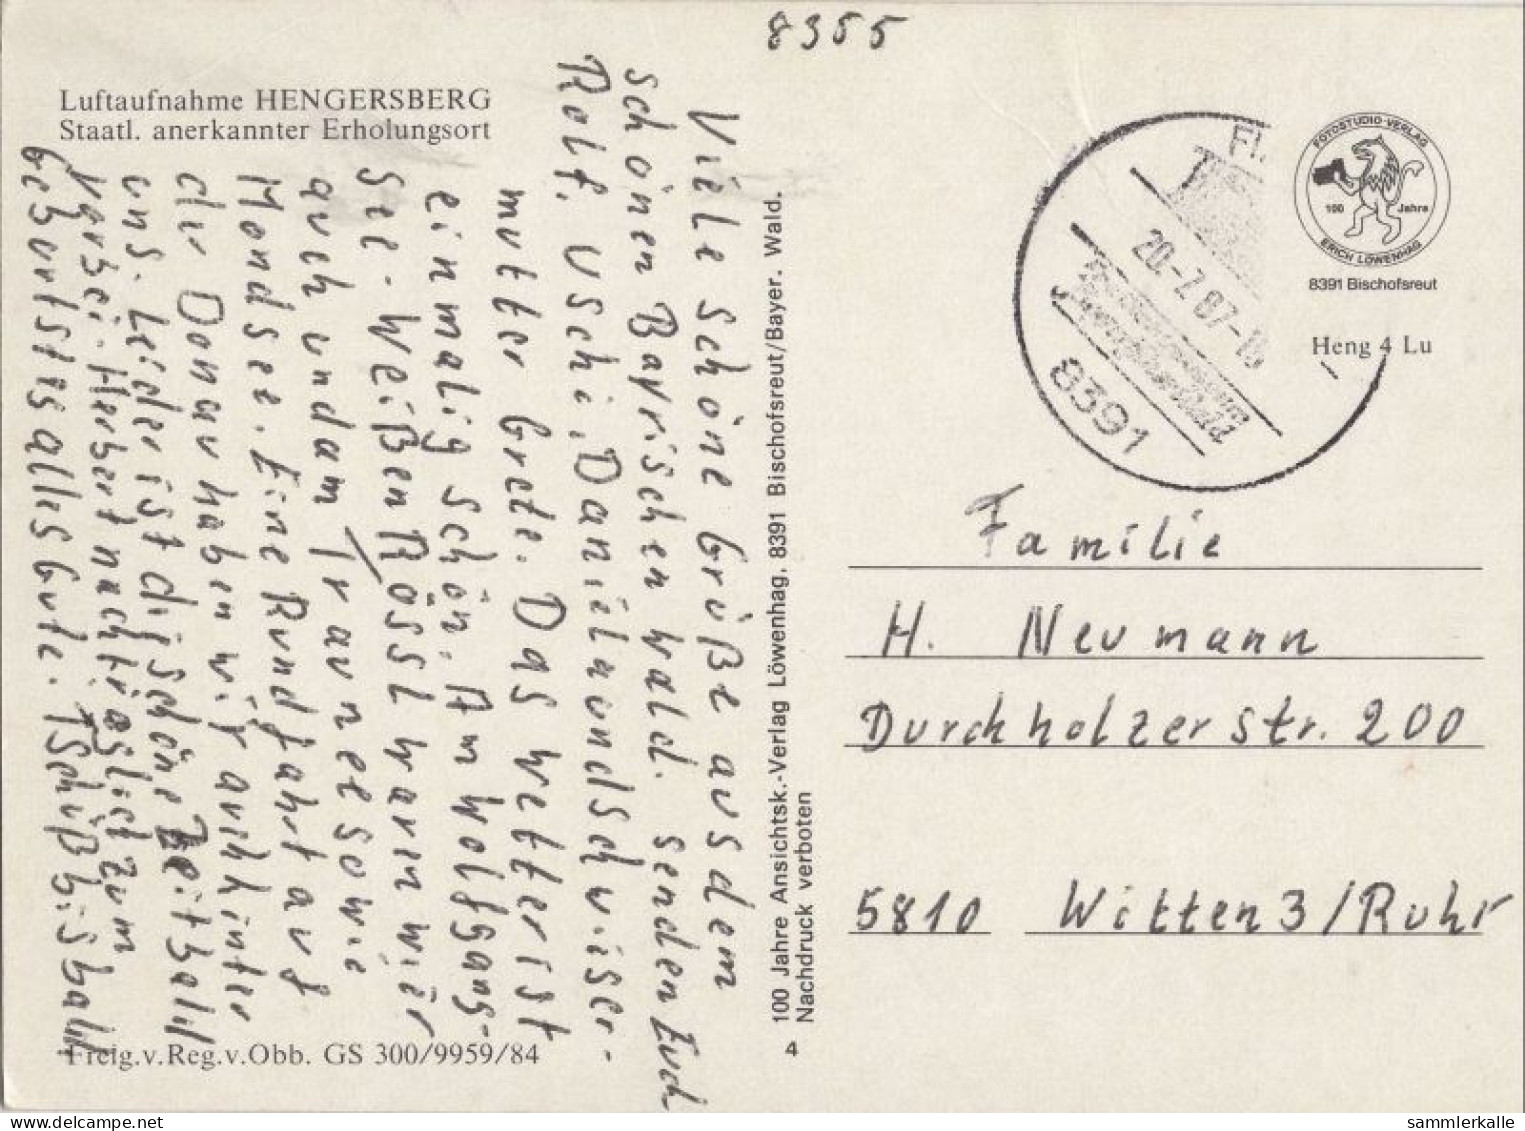 8355
Luftaufnahme HENGERSBERG
Staatl. anerkannter Erholungsort
Viele schöne Grüße aus dem
schönen Bayrischen Wald. senden Euch
Rolf, Uschi, Daniela und Schwieger-
mutter Grete. Das Wetter ist
einmalig schön. Am Wolfgang-
See - Weißen Rössl waren wir
auch und am Traunersee sowie
Mondsee. Eine Rundfahrt auf
der Donau haben wir auch hinter
uns. Leider ist die schöne Zeit bald
vorbei. Herbert nachträglich zum
Geburtstag alles Gute. Tschüß bis bald
Freig.v.Reg.v.Obb. GS 300/9959/84
100 Jahre Ansichtsk.-Verlag Löwenhag, 8391 Bischofsreut/Bayer. Wald.
Nachdruck verboten
4
20-7 87-16
8391
FOTOSTUDIO-VERLAG
100 Jahre
ERICH LÖWENHAG
8391 Bischofsreut
Heng 4 Lu
Familie
H. Neumann
Durchholzer Str. 200
5810 Witten 3/Ruhr
delcampe.net
sammlerkalle